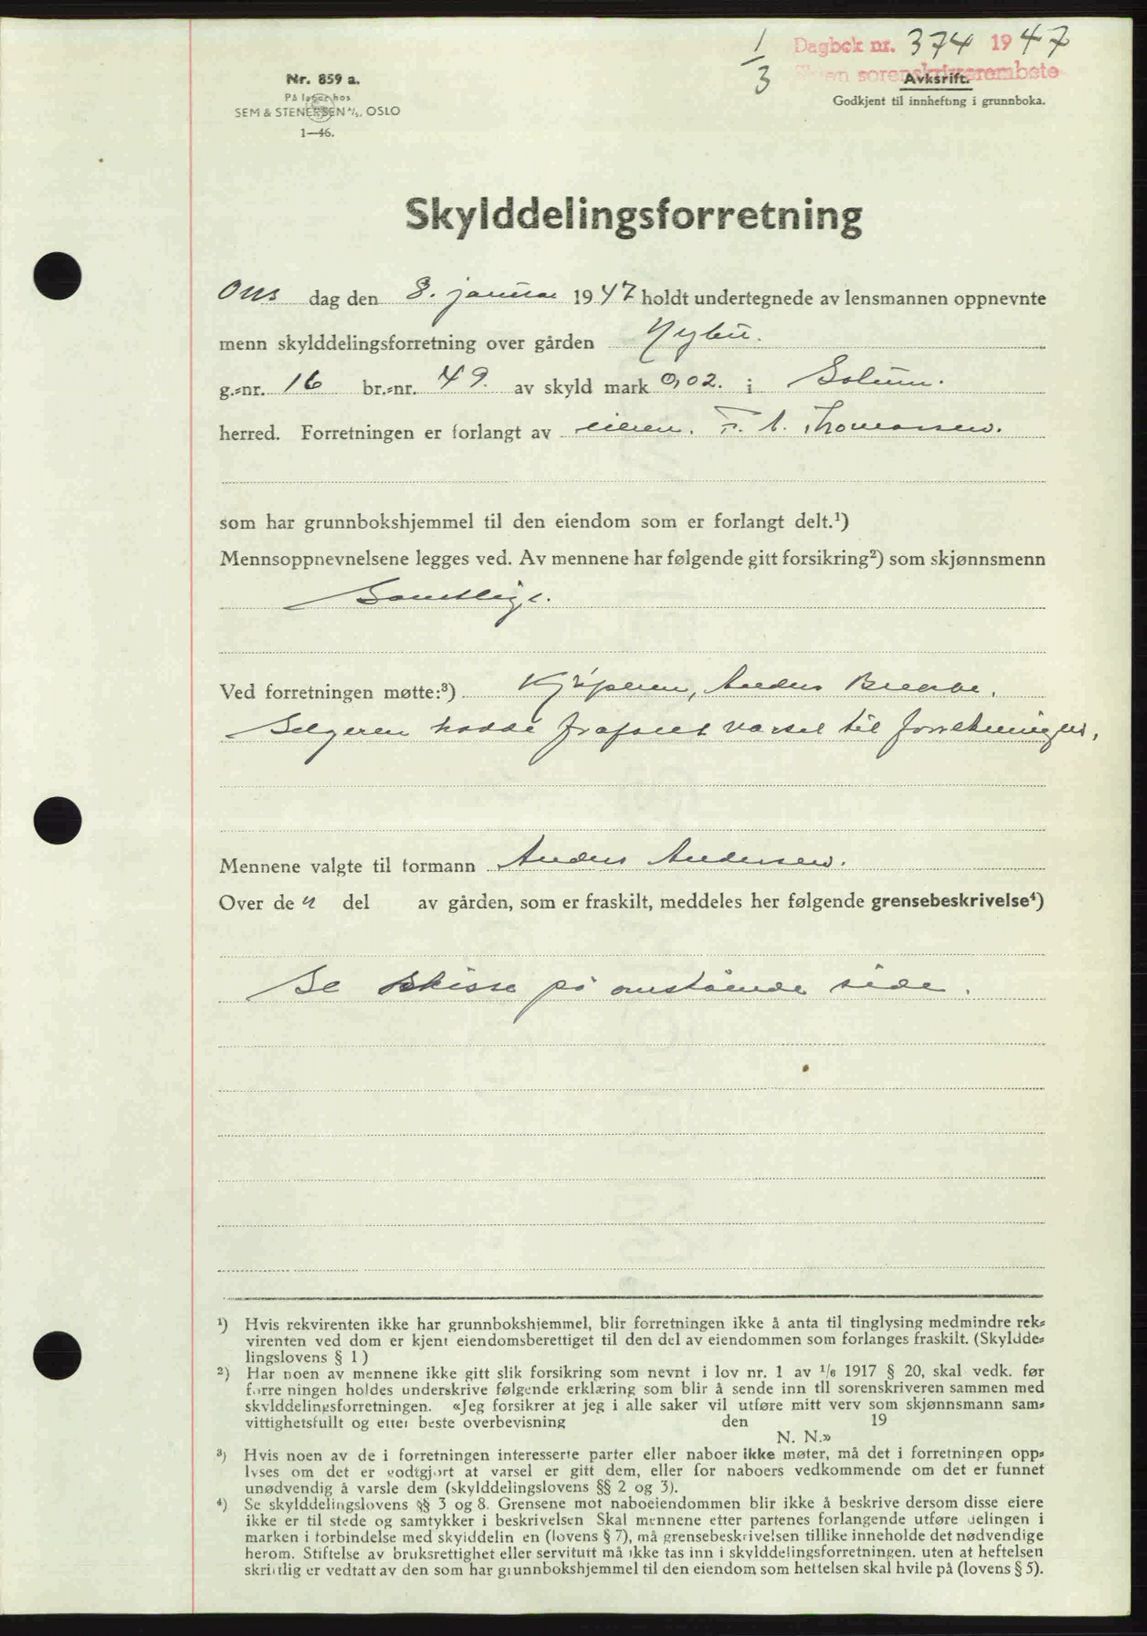 1/3 Dagbok nr. 374 1947
Skien sorenskriverembete
Nr. 859 a.
På lager hos
SEM & STENERSEN A/S, OSLO
1—46.
Avskrift.
Godkjent til innhefting i grunnboka.
Skylddelingsforretning
Ons dag den 8. januar 1947 holdt undertegnede av lensmannen oppnevnte
menn skylddelingsforretning over gården Nybu.
g.-nr. 16 br.-nr. 49. av skyld mark 0,02. i Solum.
herred. Forretningen er forlangt av eieren. F. A. Thomassen.
som har grunnbokshjemmel til den eiendom som er forlangt delt.¹)
Mennsoppnevnelsene legges ved. Av mennene har følgende gitt forsikring²) som skjønnsmenn
Samtlige.
Ved forretningen møtte:³) Kjøperen, Anders
Selgeren hadde frafalt varsel til forretningen,
Mennene valgte til formann Anders Andersen.
Over de n del av gården, som er fraskilt, meddeles her følgende grensebeskrivelse⁴)
Se skisse på omstående side.
¹) Hvis rekvirenten ikke har grunnbokshjemmel, blir forretningen ikke å anta til tinglysing medmindre rek-
virenten ved dom er kjent eiendomsberettiget til den del av eiendommen som forlanges fraskilt. (Skyldde-
lingslovens § 1)
²) Har noen av mennene ikke gitt slik forsikring som nevnt i lov nr. 1 av 1/6 1917 § 20, skal vedk. før
forretningen holdes underskrive følgende erklæring som blir å sende inn til sorenskriveren sammen med
skylddelingsforretningen. «Jeg forsikrer at jeg i alle saker vil utføre mitt verv som skjønnsmann sam-
vittighetsfullt og etter beste overbevisning den 19
N. N.»
³) Hvis noen av de i forretningen interesserte parter eller naboer ikke møter, må det i forretningen opp-
lyses om det er godtgjort at varsel er gitt dem, eller for naboers vedkommende om det er funnet
unødvendig å varsle dem (skylddelingslovens §§ 2 og 3).
⁴) Se skylddelingslovens §§ 3 og 8. Grensene mot naboeiendommen blir ikke å beskrive dersom disse eiere
ikke er til stede og samtykker i beskrivelsen Skal mennene etter partenes forlangende utføre delingen i
marken i forbindelse med skylddelingen (lovens § 7), må grensebeskrivelsen tillike inneholde det nødvendige
herom. Stiftelse av bruksrettighet eller servitutt må ikke tas inn i skylddelingsforretningen, uten at heftelsen
skriftlig er vedtatt av den som har grunnbokshjemmel til den eiendom som heftelsen skal hvile på (lovens § 5).